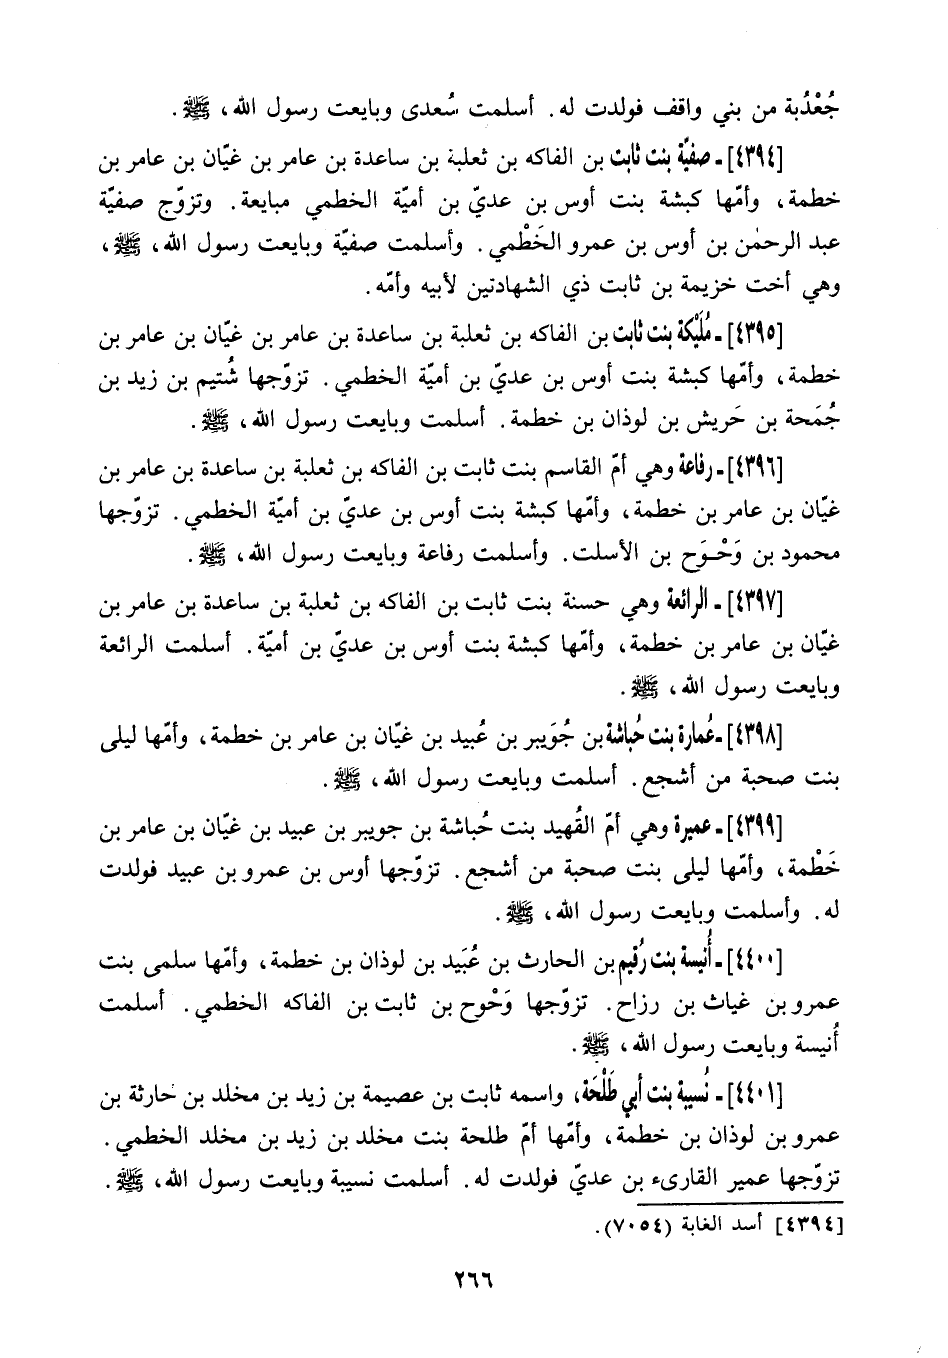 جُعْدُبة من بني واقف فولدت له. أسلمت سُعدى وبايعت رسول الله، ﷺ.
[٤٣٩٤] ـ صفيّة بنت ثابت بن الفاكه بن ثعلبة بن ساعدة بن عامر بن غيّان بن عامر بن
خطمة، وأمّها كبشة بنت أوس بن عديّ بن أميّة الخطمي مبايعة. وتزوّج صفيّة
عبد الرحمٰن بن أوس بن عمرو الخَطْمي. وأسلمت صفيّة وبايعت رسول الله، ﷺ،
وهي أخت خزيمة بن ثابت ذي الشهادتين لأبيه وأمّه.
[٤٣٩٥] ـ مُلَيْكة بنت ثابت بن الفاكه بن ثعلبة بن ساعدة بن عامر بن غيّان بن عامر بن
خطمة، وأمّها كبشة بنت أوس بن عديّ بن أميّة الخطمي. تزوّجها شُتيم بن زيد بن
جُمَحة بن حَريش بن لوذان بن خطمة. أسلمت وبايعت رسول الله، ﷺ.
[٤٣٩٦] ـ رفاعة وهي أمّ القاسم بنت ثابت بن الفاكه بن ثعلبة بن ساعدة بن عامر بن
غيّان بن عامر بن خطمة، وأمّها كبشة بنت أوس بن عديّ بن أميّة الخطمي. تزوّجها
محمود بن وَحْـوَح بن الأسلت. وأسلمت رفاعة وبايعت رسول الله، ﷺ.
[٤٣٩٧] ـ الرائعة وهي حسنة بنت ثابت بن الفاكه بن ثعلبة بن ساعدة بن عامر بن
غيّان بن عامر بن خطمة، وأمّها كبشة بنت أوس بن عديّ بن أميّة. أسلمت الرائعة
وبايعت رسول الله، ﷺ.
[٤٣٩٨] ـ عُمارة بنت حُباشة بن جُوَيبر بن عُبيد بن غيّان بن عامر بن خطمة، وأمّها ليلى
بنت صحبة من أشجع. أسلمت وبايعت رسول الله، ﷺ.
[٤٣٩٩] ـ عميرة وهي أمّ القُهيد بنت حُباشة بن جويبر بن عبيد بن غيّان بن عامر بن
خَطْمة، وأمّها ليلى بنت صحبة من أشجع. تزوّجها أوس بن عمرو بن عبيد فولدت
له. وأسلمت وبايعت رسول الله، ﷺ.
[٤٤٠٠] ـ أُنيسة بنت رُقيم بن الحارث بن عُبَيد بن لوذان بن خطمة، وأمّها سلمى بنت
عمرو بن غياث بن رزاح. تزوّجها وَحْوح بن ثابت بن الفاكه الخطمي. أسلمت
أُنيسة وبايعت رسول الله، ﷺ.
[٤٤٠١] ـ نُسيبة بنت أبي طَلْحَة، واسمه ثابت بن عصيمة بن زيد بن مخلد بن حارثة بن
عمرو بن لوذان بن خطمة، وأمّها أمّ طلحة بنت مخلد بن زيد بن مخلد الخطمي.
تزوّجها عمير القارىء بن عديّ فولدت له. أسلمت نسيبة وبايعت رسول الله، ﷺ.
[٤٣٩٤] أسد الغابة (٧٠٥٤).
٢٦٦